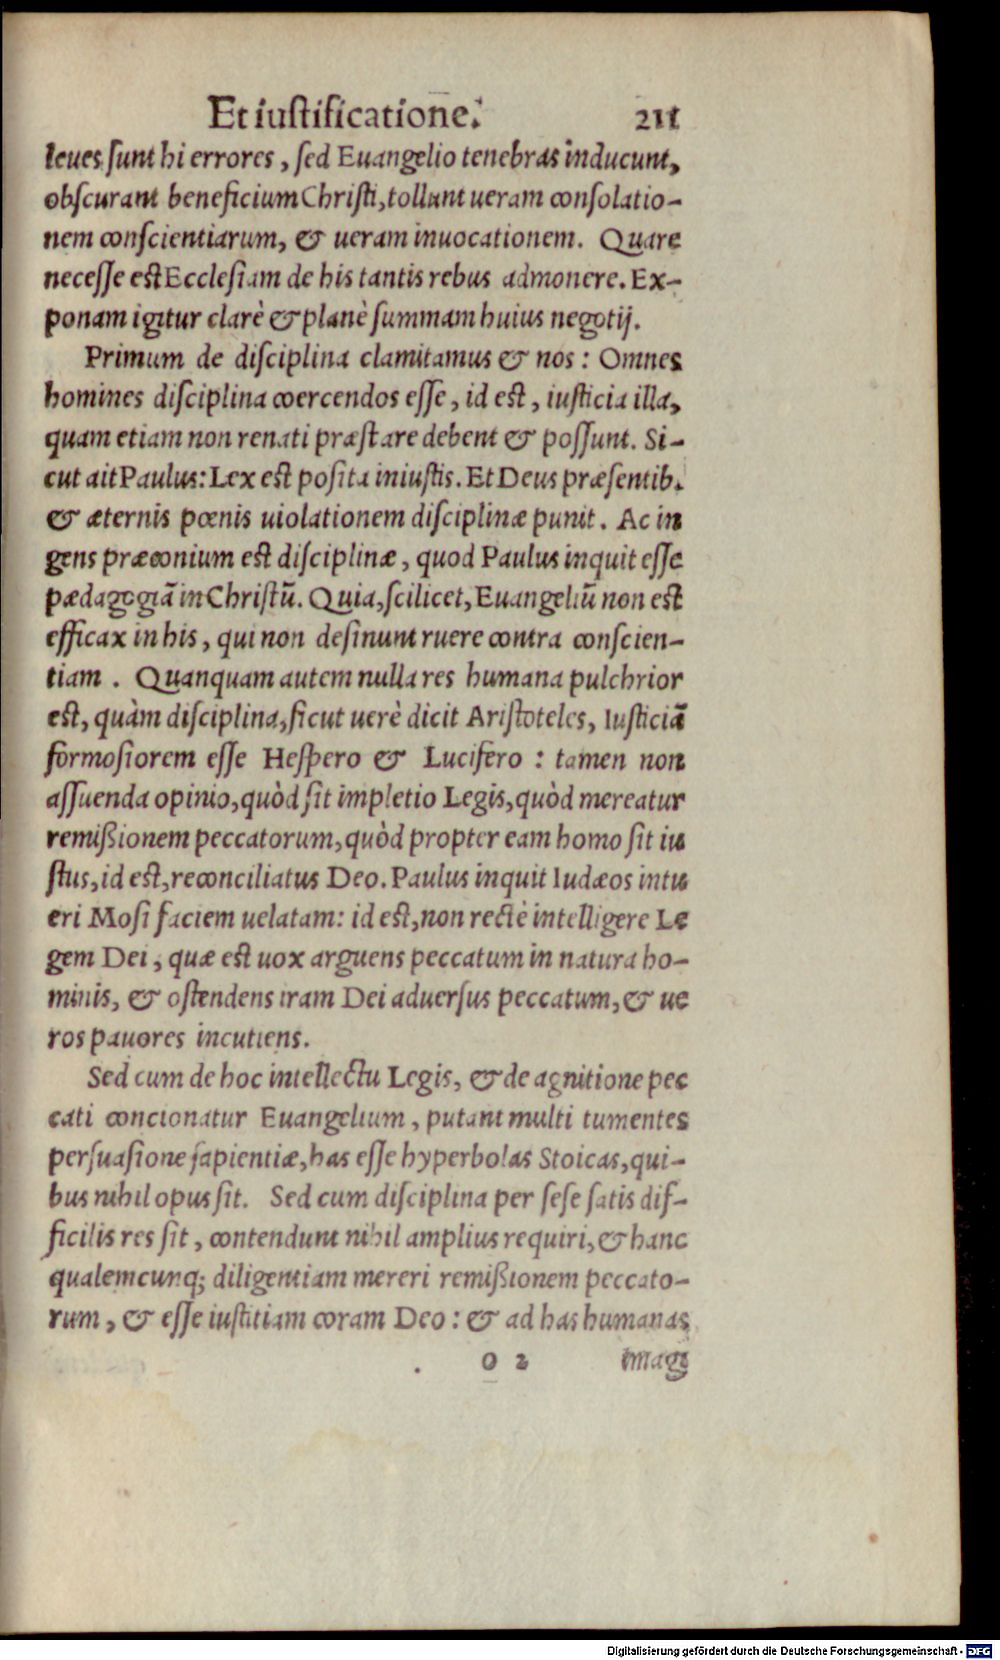 Et iustificatione. 211
leues sunt hi errores, sed Euangelio tenebras inducunt,
obscurant beneficium Christi, tollunt ueram consolatio-
nem conscientiarum, & ueram inuocationem. Quare
necesse est Ecclesiam de his tantis rebus admonere. Ex-
ponam igitur clarè & planè summam huius negotij.
Primum de disciplina clamitamus & nos: Omnes
homines disciplina coercendos esse, id est, iusticia illa,
quam etiam non renati præstare debent & possunt. Si-
cut ait Paulus: Lex est posita iniustis. Et Deus præsentib.
& æternis pœnis uiolationem disciplinæ punit. Ac in
gens præconium est disciplinæ, quod Paulus inquit esse
pædagogiã in Christũ. Quia, scilicet, Euangeliũ non est
efficax in his, qui non desinunt ruere contra conscien-
tiam. Quanquam autem nulla res humana pulchrior
est, quàm disciplina, sicut uerè dicit Aristoteles, Iusticiã
formosiorem esse Hespero & Lucifero: tamen non
assuenda opinio, quòd sit impletio Legis, quòd mereatur
remißionem peccatorum, quòd propter eam homo sit iu
stus, id est, reconciliatus Deo. Paulus inquit Iudæos intu
eri Mosi faciem uelatam: id est, non rectè intelligere Le
gem Dei, quæ est uox arguens peccatum in natura ho-
minis, & ostendens iram Dei aduersus peccatum, & ue
ros pauores incutiens.
Sed cum de hoc intellectu Legis, & de agnitione pec
cati concionatur Euangelium, putant multi tumentes
persuasione sapientiæ, has esse hyperbolas Stoicas, qui-
bus nihil opus sit. Sed cum disciplina per sese satis dif-
ficilis res sit, contendunt nihil amplius requiri, & hanc
qualemcunq; diligentiam mereri remißionem peccato-
rum, & esse iustitiam coram Deo: & ad has humanas
o 2 imagi
Digitalisierung gefördert durch die Deutsche Forschungsgemeinschaft - DFG